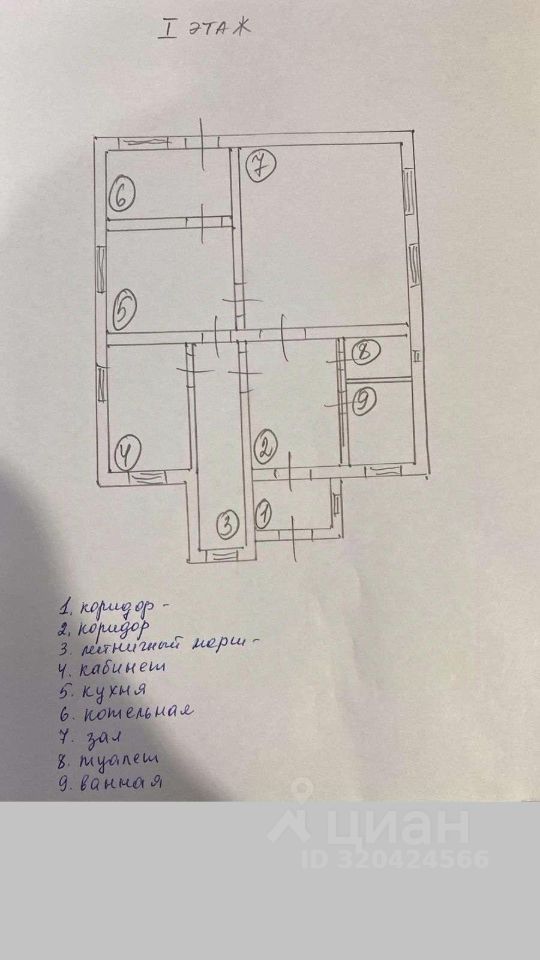 I ЭТАЖ
7
6
5
8
9
4
2
3
1
1. коридор -
2. коридор
3. лестничный марш -
4. кабинет
5. кухня
6. котельная
7. зал
8. туалет
9. ванная
циан
ID 320424566